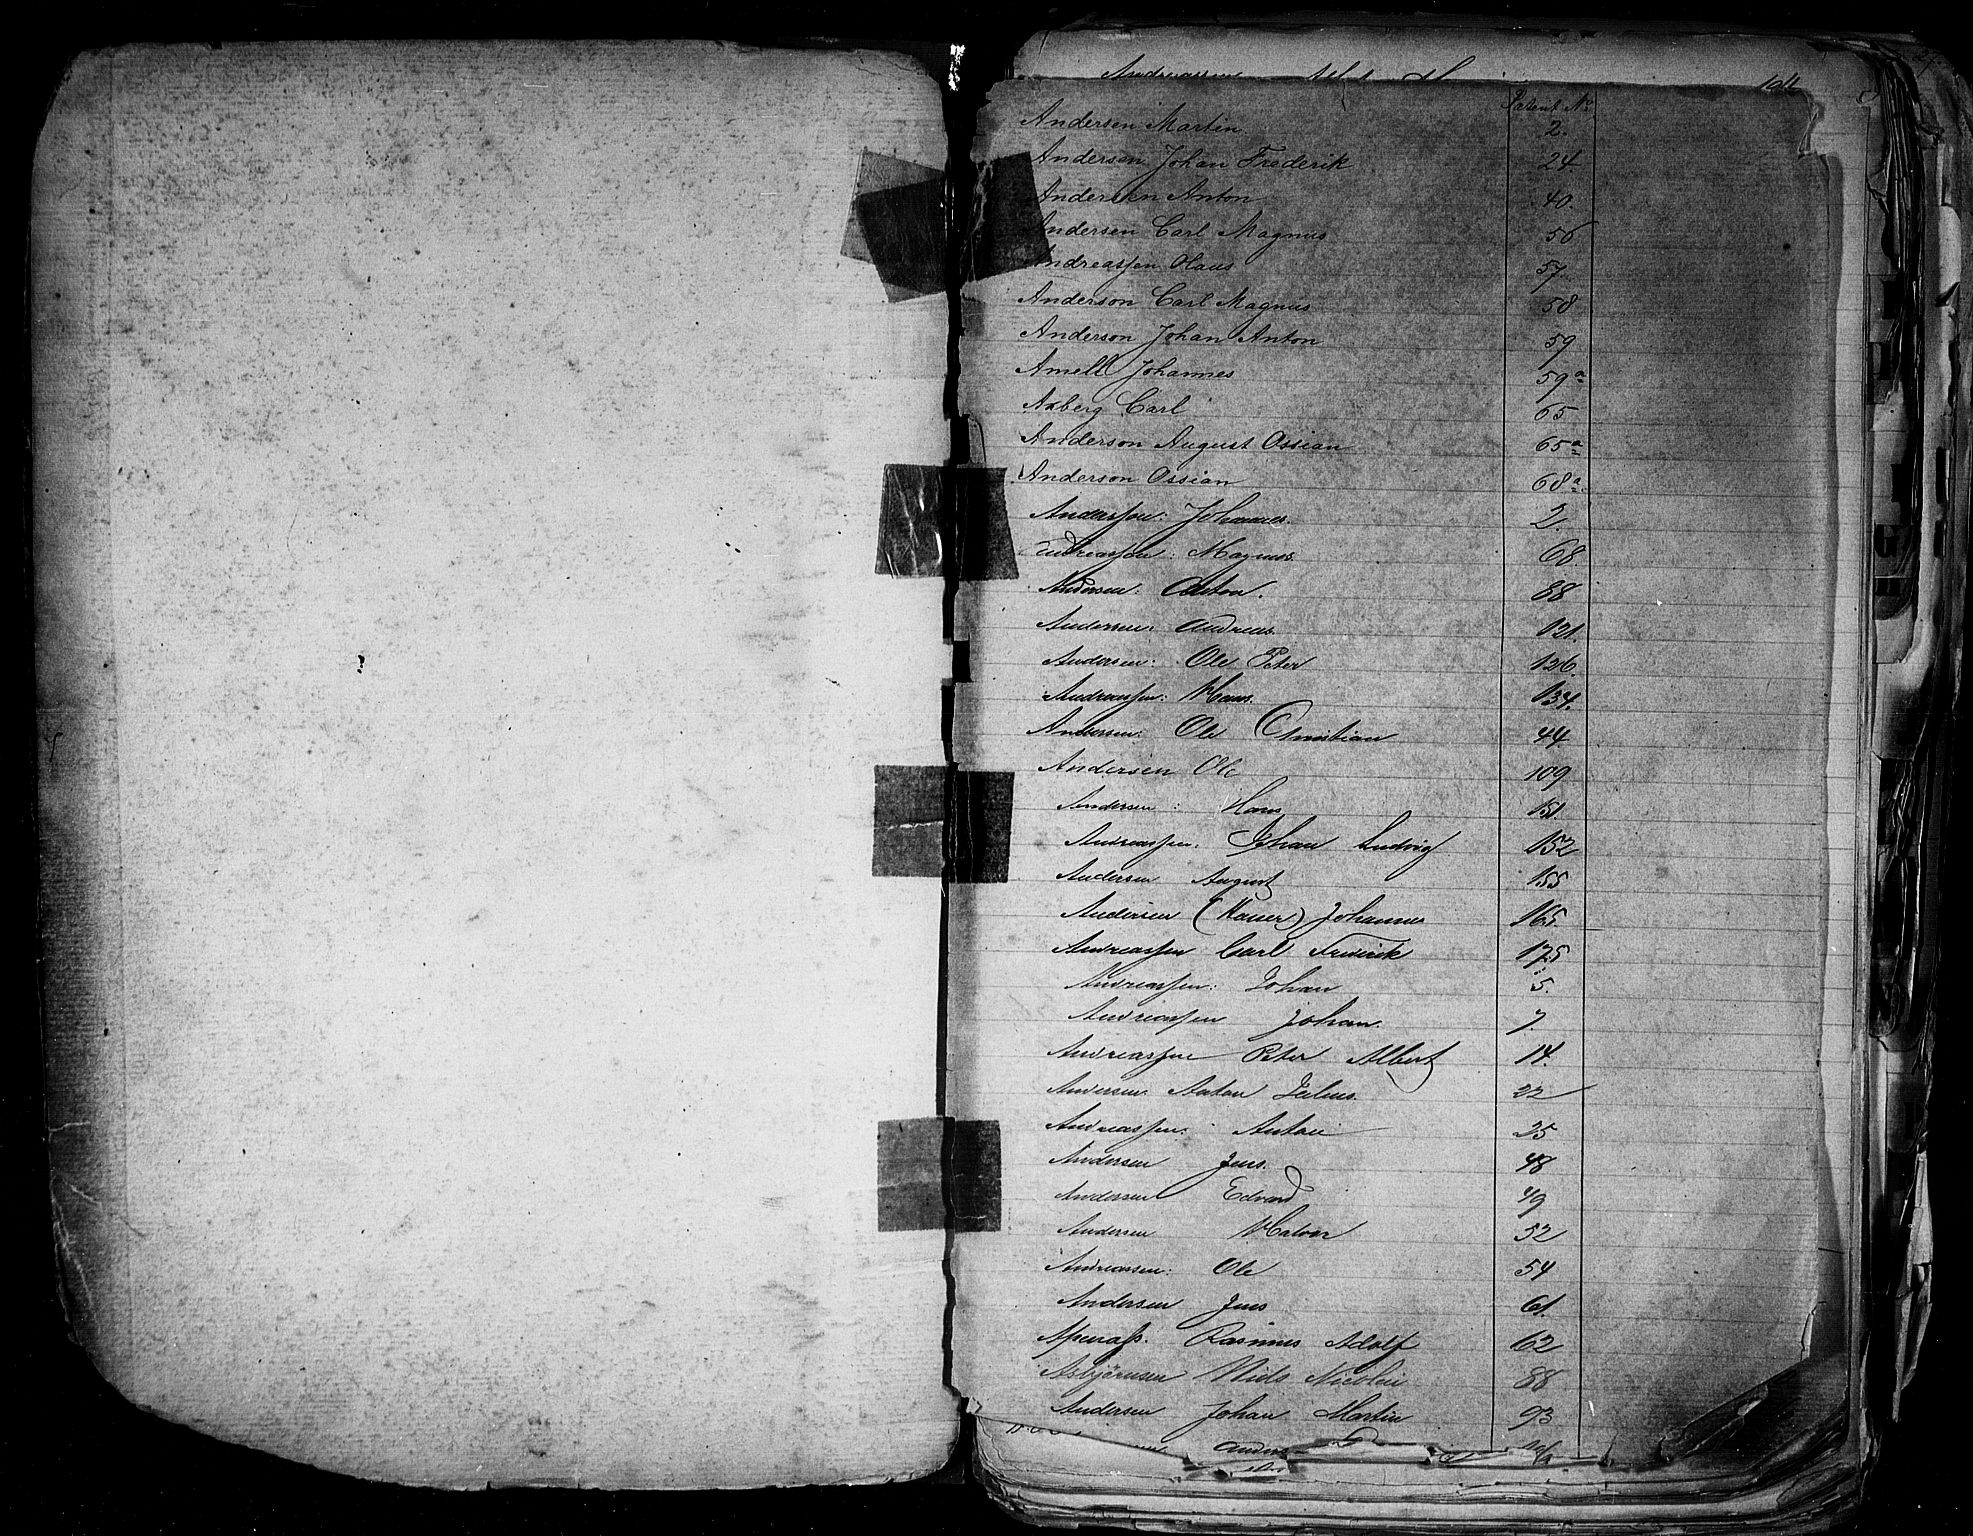 Andreassen 104
Patent No
Andersen Martin 2.
Anderson Johan Frederik 24.
Andersen Anton 40.
Andersen Carl Magnus 56
Andreassen Claus 57
Anderson Carl Magnus 58
Anderson Johan Anton 59
Amell Johannes 59a
Axberg Carl 65
Anderson August Ossian 65a
Anderson Ossian 68a
Anderssen: Johannes. 2.
Andreassen: Magnus. 68.
Andersen: Anton. 88
Andersen: Andreas. 121.
Andersen: Ole Peter 126.
Andreassen: Hans. 134.
Andersen: Ole Christian 44.
Andersen Ole 109
Andersen: Hans 151.
Andreassen. Johan Ludvig 152
Andersen August 155
Andersen Johannes 165.
Andreassen Carl Frederik 175
Andreassen: Johan 5.
Andreassen Johan. 7.
Andreassen Peter Albert 14.
Andersen Anton Julius. 22
Andreassen: Anton 25
Andersen Jens. 48
Andersen Edvard 49
Andersen Halvor 52
Andreassen: Ole 54
Andersen Jens 61.
Rasmus Adolf 62
Asbjörnsen Niels Nicolai 88
Andersen Johan Martin 93
Anders